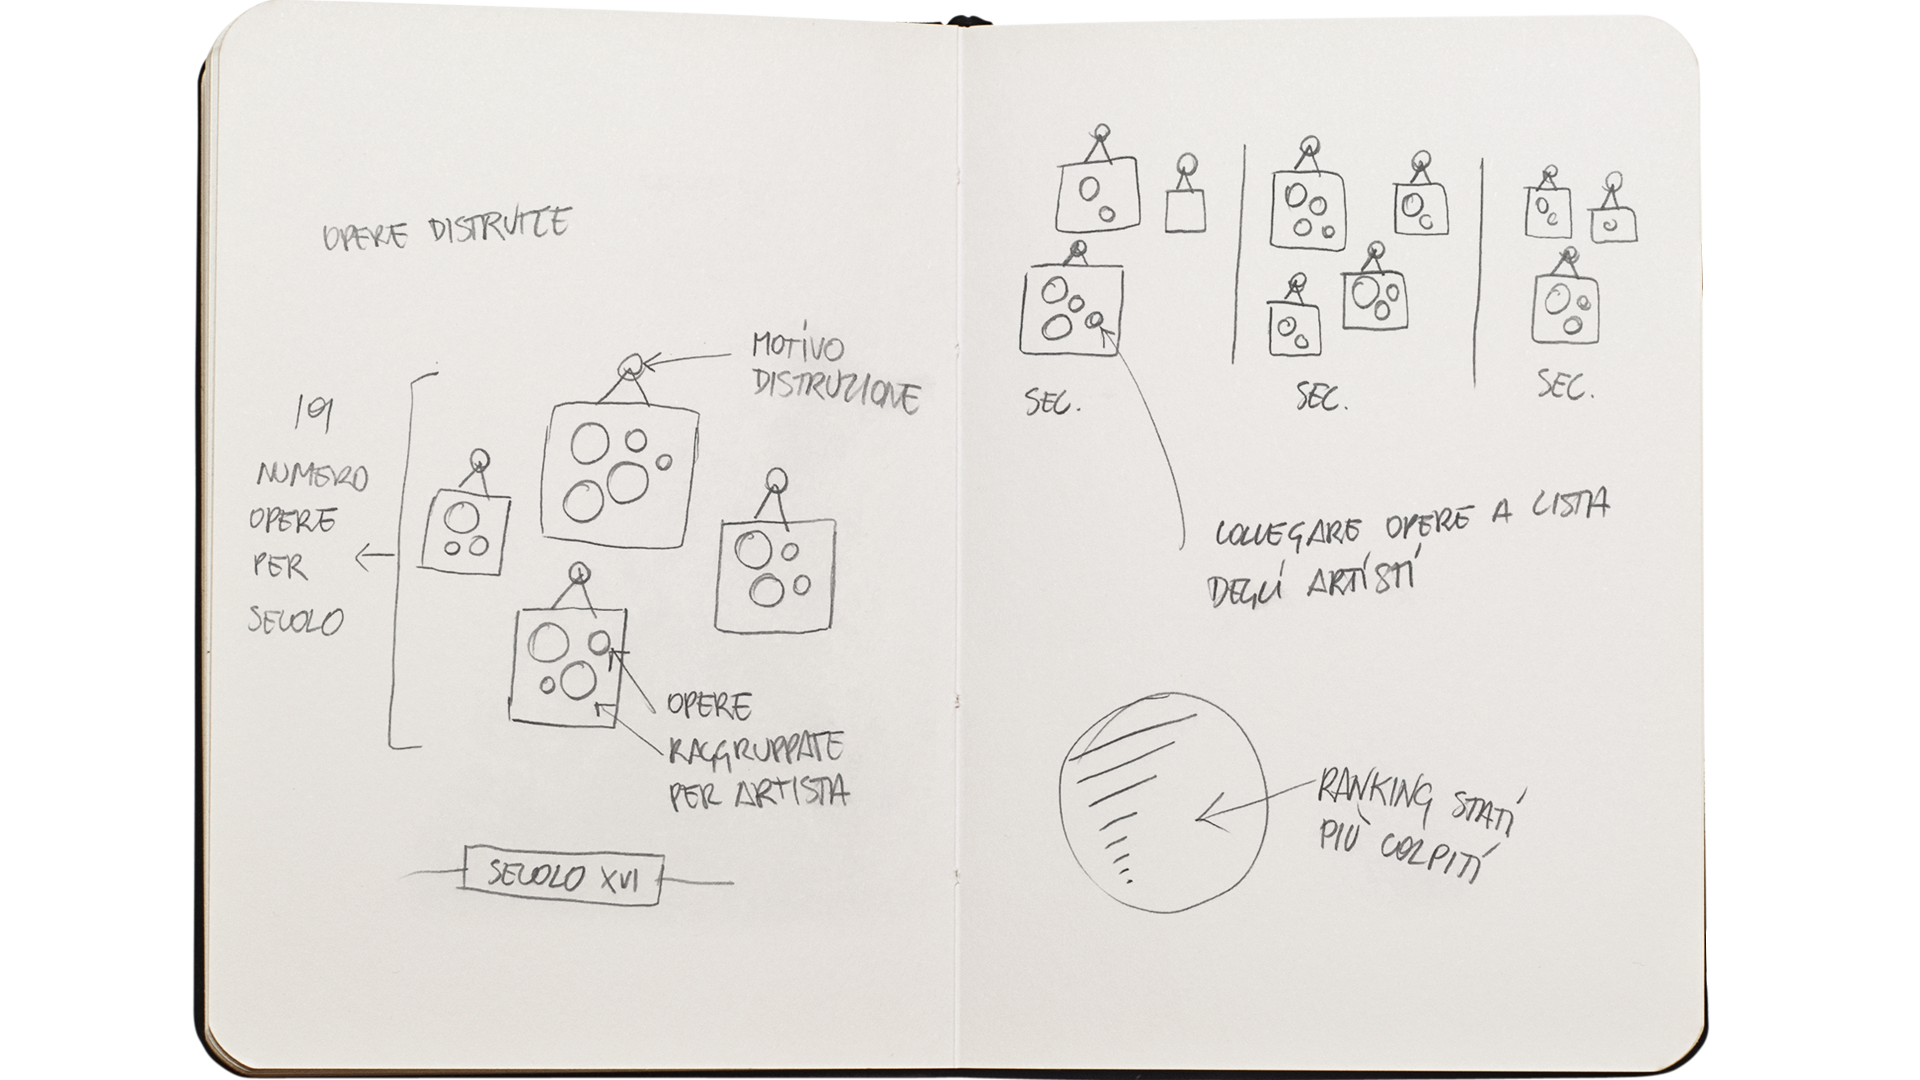 OPERE DISTRUTTE
MOTIVO
DISTRUZIONE
19
NUMERO
OPERE
PER
SECOLO
OPERE
RAGGRUPPATE
PER ARTISTA
SECOLO XVI
SEC.
SEC.
SEC.
COLLEGARE OPERE A LISTA
DEGLI ARTISTI
RANKING STATI
PIÙ COLPITI